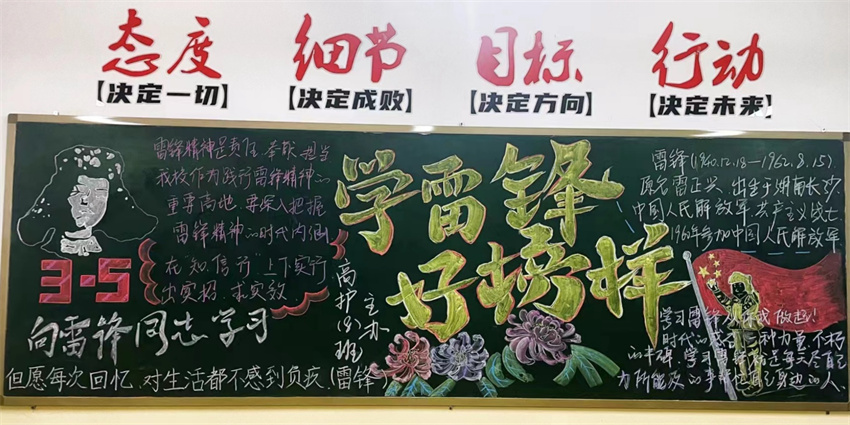 态度 细节 目标 行动
【决定一切】 【决定成败】 【决定方向】 【决定未来】
雷锋精神是责任、奉献、担当
我校作为践行雷锋精神的
重要阵地,要深入把握
雷锋精神的时代内涵
在"知、信、行"上下实行
出实招、求实效
3·5
向雷锋同志学习
但愿每次回忆,对生活都不感到负疚(雷锋)
学雷锋
好榜样
高护(8)班
主办
雷锋(1940.12.18—1962.8.15)
原名雷正兴,出生于湖南长沙
中国人民解放军共产主义战士
1960年参加中国人民解放军
学习雷锋 做起!
时代的 一种力量不朽
的丰碑,学习雷锋 每天尽自己
力所能及的事 身边的人、